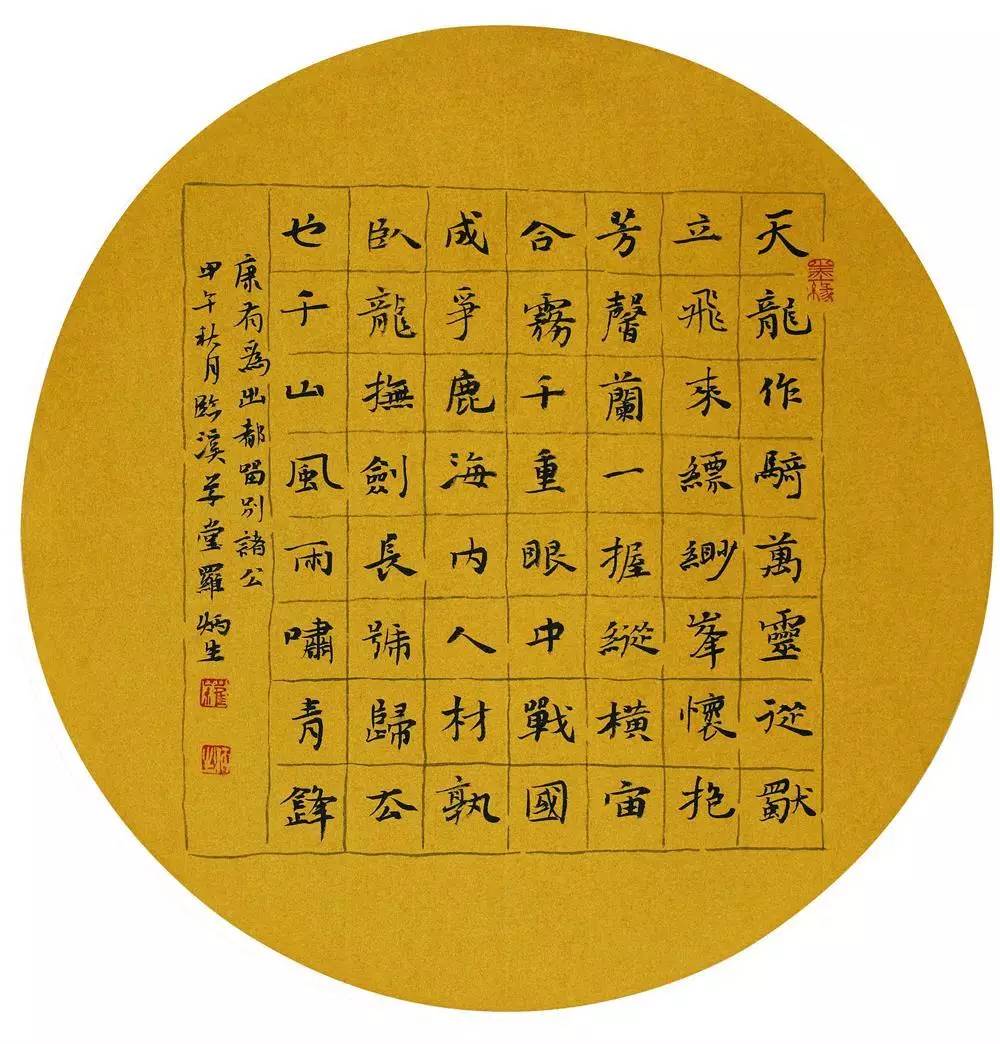 天龍作騎萬靈從獨
立飛來縹緲峯懷抱
芳馨蘭一握縱橫宙
合霧千重眼中戰國
成爭鹿海內人材孰
臥龍撫劍長號歸去
也千山風雨嘯青鋒
康有為出都留別諸公
甲午秋月臨溪草堂羅炳生